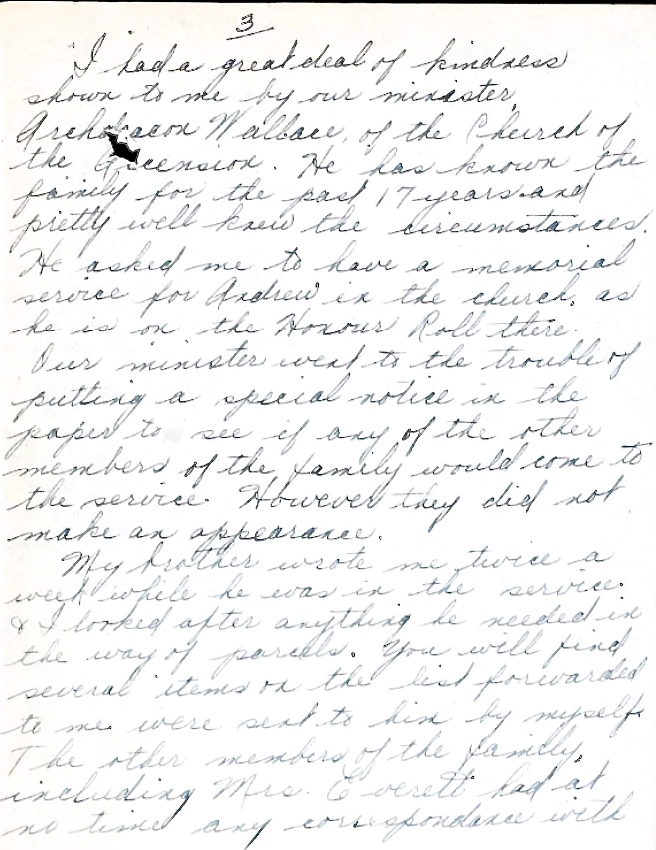 3
I had a great deal of kindness
shown to me by our minister,
Archdeacon Wallace, of the Church of
the Ascension. He has known the
family for the past 17 years and
pretty well knew the circumstances.
He asked me to have a memorial
service for Andrew in the church, as
he is on the Honour Roll there.
Our minister went to the trouble of
putting a special notice in the
paper to see if any of the other
members of the family would come to
the service. However they did not
make an appearance.
My brother wrote me twice a
week while he was in the service.
& I looked after anything he needed in
the way of parcels. You will find
several items on the list forwarded
to me were sent to him by myself.
The other members of the family,
including Mrs. Everett had at
no time any correspondance with